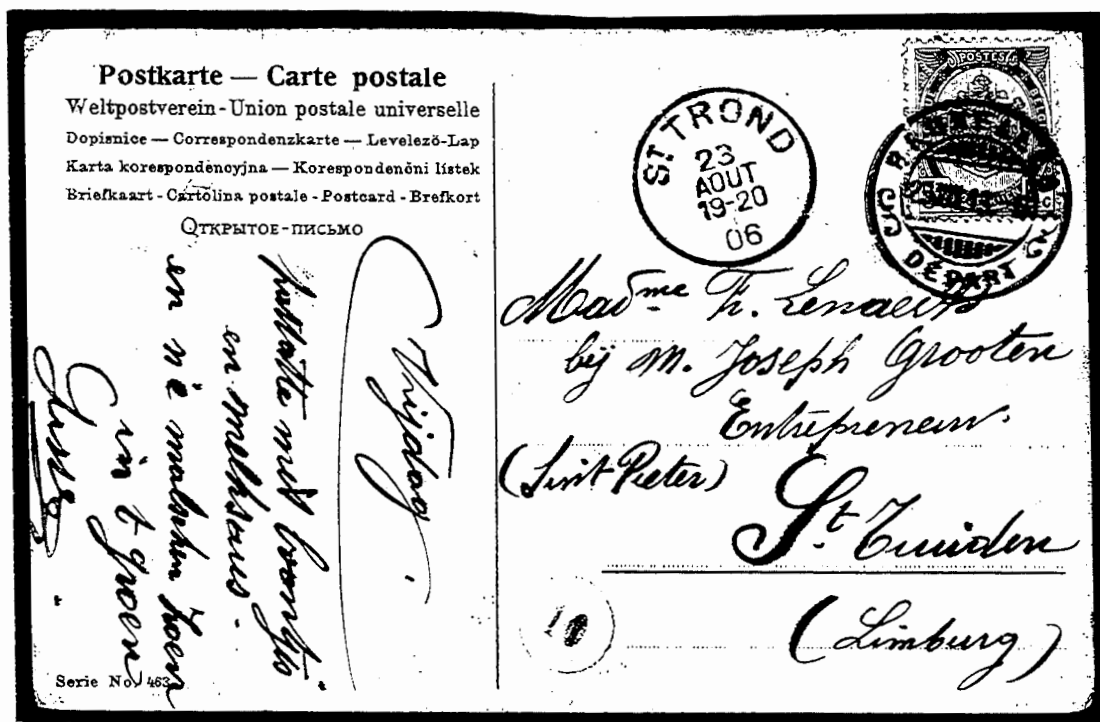 Postkarte — Carte postale
Weltpostverein - Union postale universelle
Dopisnice — Correspondenzkarte — Levelező-Lap
Karta korespondencyjna — Korespondenční lístek
Briefkaart - Cartolina postale - Postcard - Brefkort
Открытое-письмо
Vrijdag.
en melksaus.
en
in t groen
Serie No. 463
POSTES
ST TROND
23
AOUT
19-20
06
DÉPART
Madme Fr. Lenaerts
bij M. Joseph Grooten
Entrepreneur.
(Sint Pieter)
St. Truiden
(Limburg)